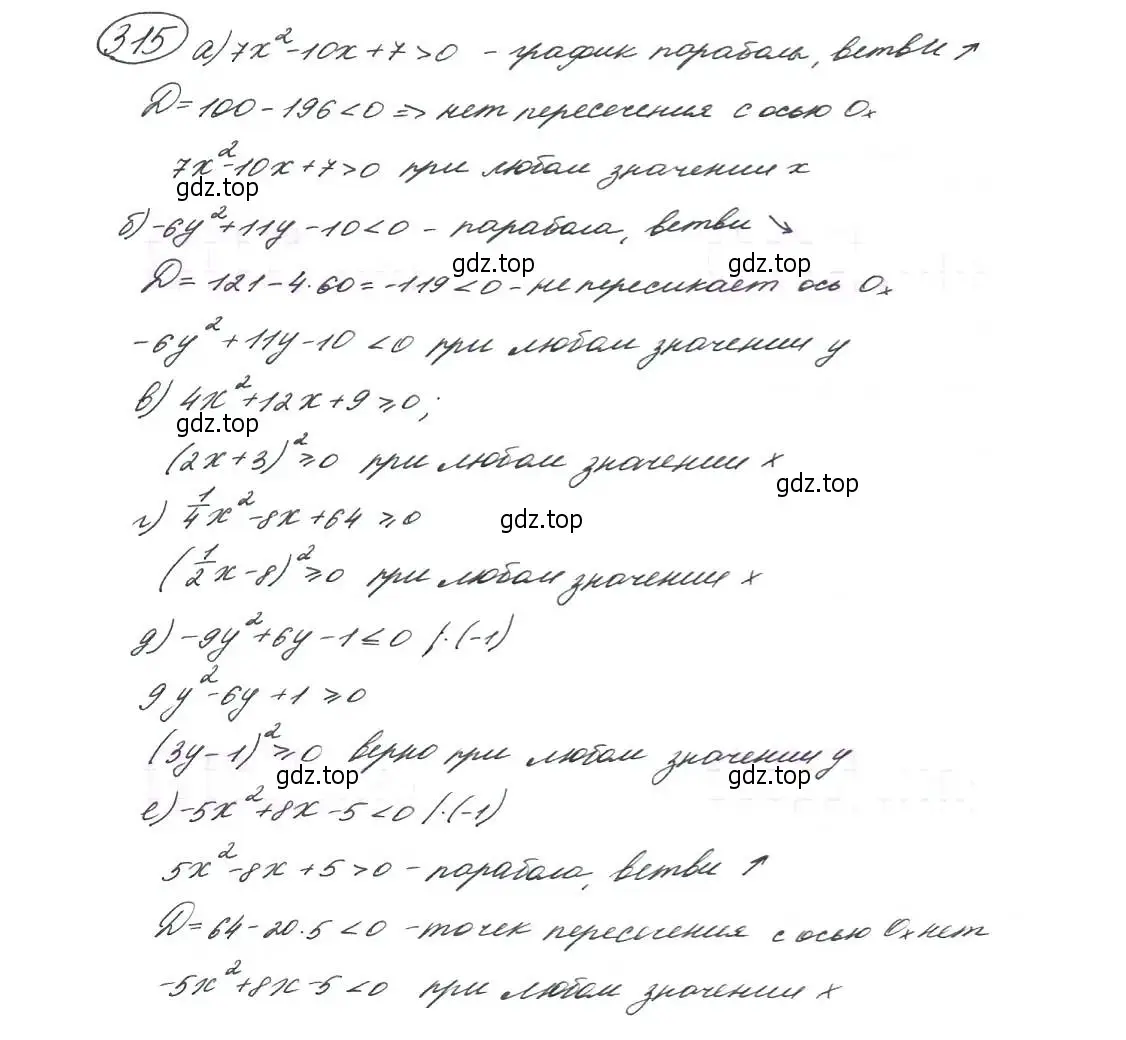 315 а) 7x² - 10x + 7 > 0 - график параболы, ветви ↑
D = 100 - 196 < 0 => нет пересечения с осью Ox
7x² - 10x + 7 > 0 при любом значении x
gdz.top
б) -6y² + 11y - 10 < 0 - парабола, ветви ↘
gdz.top gdz.top
D = 121 - 4·60 = -119 < 0 - не пересикает ось Ox
-6y² + 11y - 10 < 0 при любом значении y
в) 4x² + 12x + 9 ⩾ 0;
gdz.top
(2x + 3)² ⩾ 0 при любом значении x
gdz.top
г) 1/4 x² - 8x + 64 ⩾ 0
gdz.top
(1/2 x - 8)² ⩾ 0 при любом значении x
д) -9y² + 6y - 1 ⩽ 0 /·(-1)
9y² - 6y + 1 ⩾ 0
(3y - 1)² ⩾ 0 верно при любом значении y
gdz.top gdz.top
е) -5x² + 8x - 5 < 0 /·(-1)
5x² - 8x + 5 > 0 - парабола, ветви ↑
D = 64 - 20·5 < 0 - точек пересечения с осью Ox нет
-5x² + 8x - 5 < 0 при любом значении x